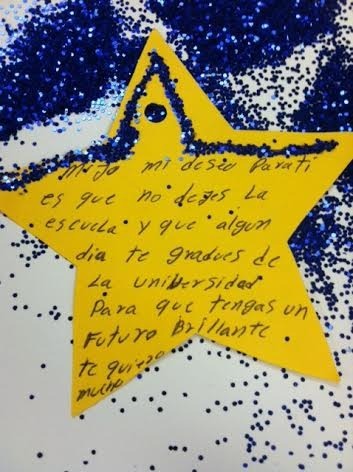 Mijo mi deseo Para ti
es que no dejes La
escuela y que algun
dia te gradues de
La universidad
Para que tengas un
Futuro Brillante
te quiero
mucho